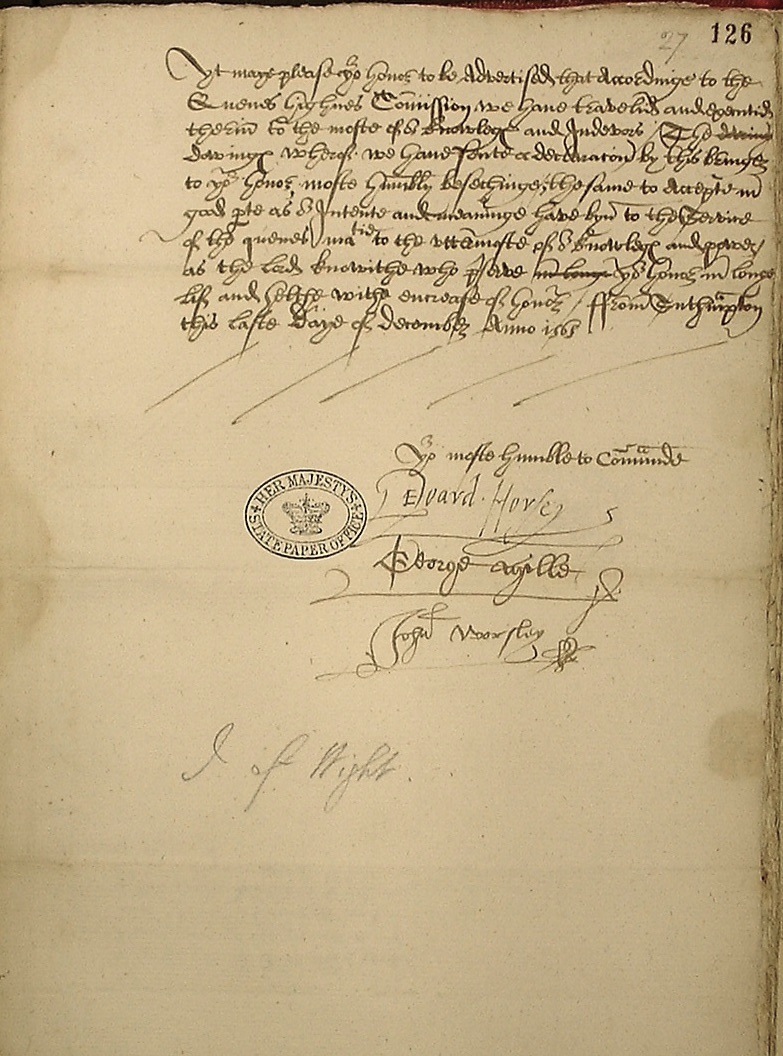 27 126
Yt maye please yor honor to be Advertised that Accordinge to the
Quenes highnes Comission we have traveled and
therin to the moste of or knowlege and Indevors / The
doinges wherof we have sente a declaracon by this bringer
to yor honor, moste humbly beseching the same to Accepte in
good pte as or Intente and meaninge have byn to the Service
of the quenes matie to the uttermoste of or knowlege and power /
as the lord knowithe who pserve in longe yor honor in longe
lif and helthe withe encrease of honor / ffrom Suthampton
this laste Daye of december Anno 1565
Yor moste humble to Comaunde
Edward Horsey
HER MAJESTY'S STATE PAPER OFFICE
George Mylle
John Worsley
I of Wight.